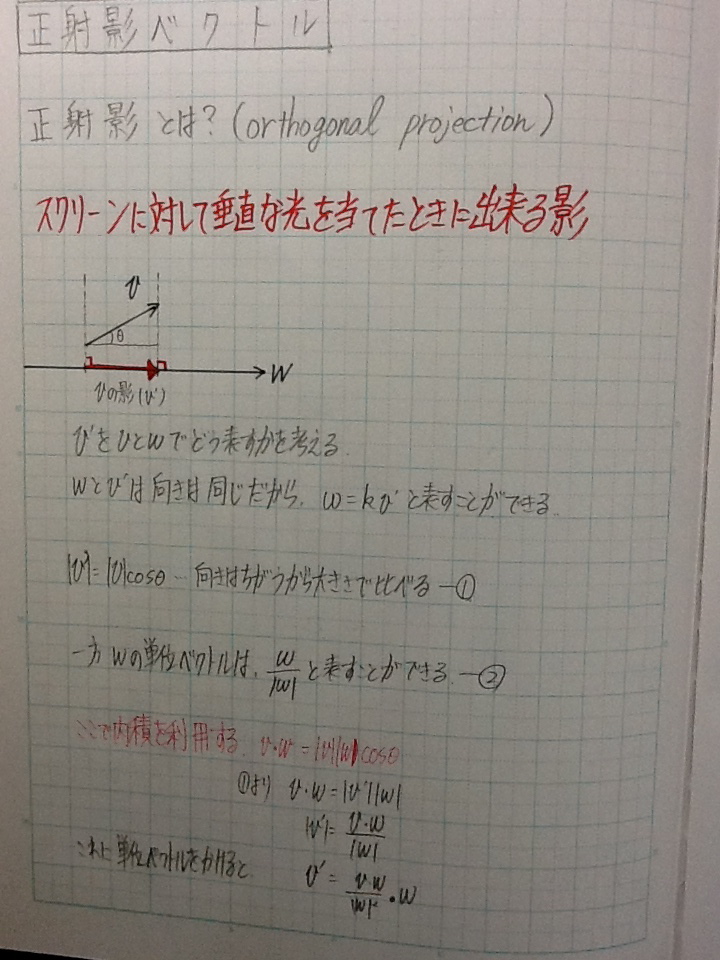 正射影ベクトル
正射影とは?(orthogonal projection)
スクリーンに対して垂直な光を当てたときに出来る影
v
θ
w
vの影(v')
v'をvとwでどう表すかを考える.
wとv'は向きは同じだから, w=kv'と表すことができる.
|v'|=|v|cosθ … 向きはちがうから大きさで比べる ―①
一方wの単位ベクトルは, w/|w| と表すことができる. ―②
ここで内積を利用する. v・w=|v||w|cosθ
①より v・w=|v'||w|
|v'|= v・w/|w|
これに単位ベクトルをかけると. v' = v・w/|w|² ・w